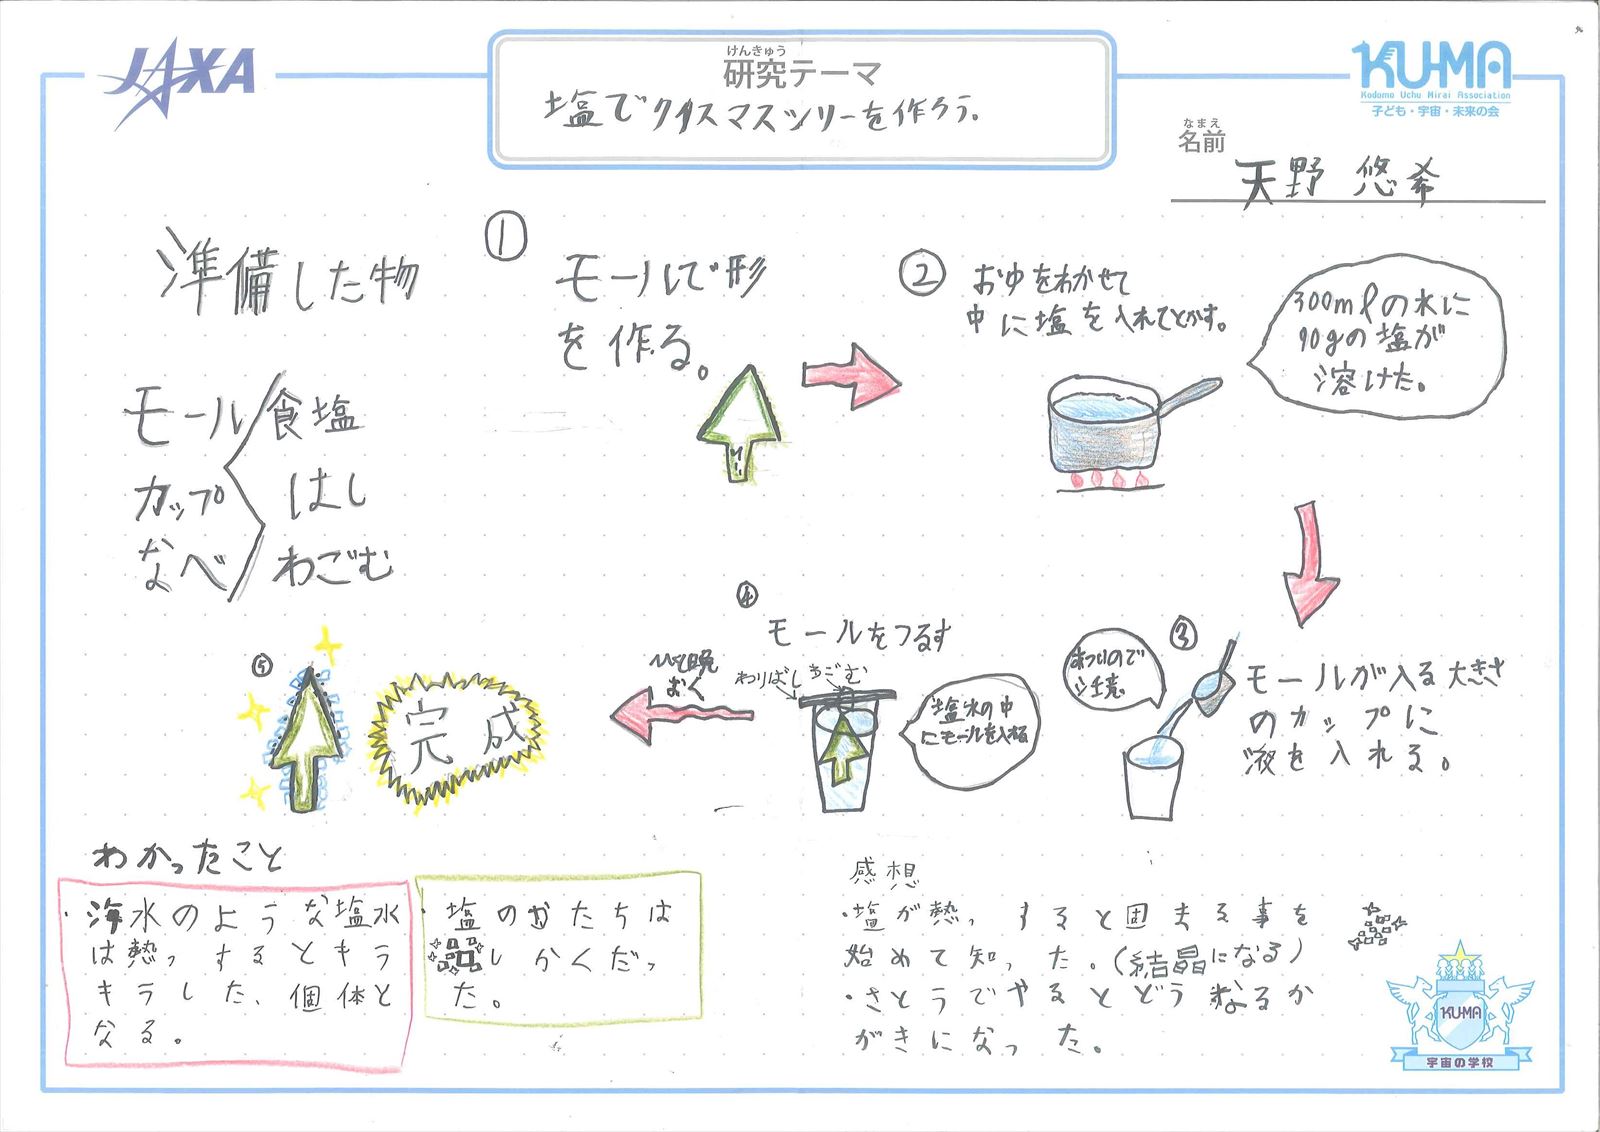 JAXA
けんきゅう
研究テーマ
塩でクリスマスツリーを作ろう。
KU-MA
Kodomo Uchu Mirai Association
子ども・宇宙・未来の会
なまえ
名前
天野 悠希
準備した物
モール
カップ
なべ
食塩
はし
わごむ
①
モールで形
を作る。
②
おゆをわかせて
中に塩を入れてとかす。
300mlの水に
90gの塩が
溶けた。
③
モールが入る大きさ
のカップに
液を入れる。
あついので
注意
④
モールをつるす
わりばし
わごむ
塩水の中
にモールを入れる
ひと晩
おく
⑤
完成
わかったこと
・海水のような塩水
は熱っするとキラ
キラした、個体と
なる。
・塩のかたちは
しかくだっ
た。
感想
・塩が熱っすると固まる事を
始めて知った。(結晶になる)
・さとうでやるとどうなるか
がきになった。
KU-MA
宇宙の学校